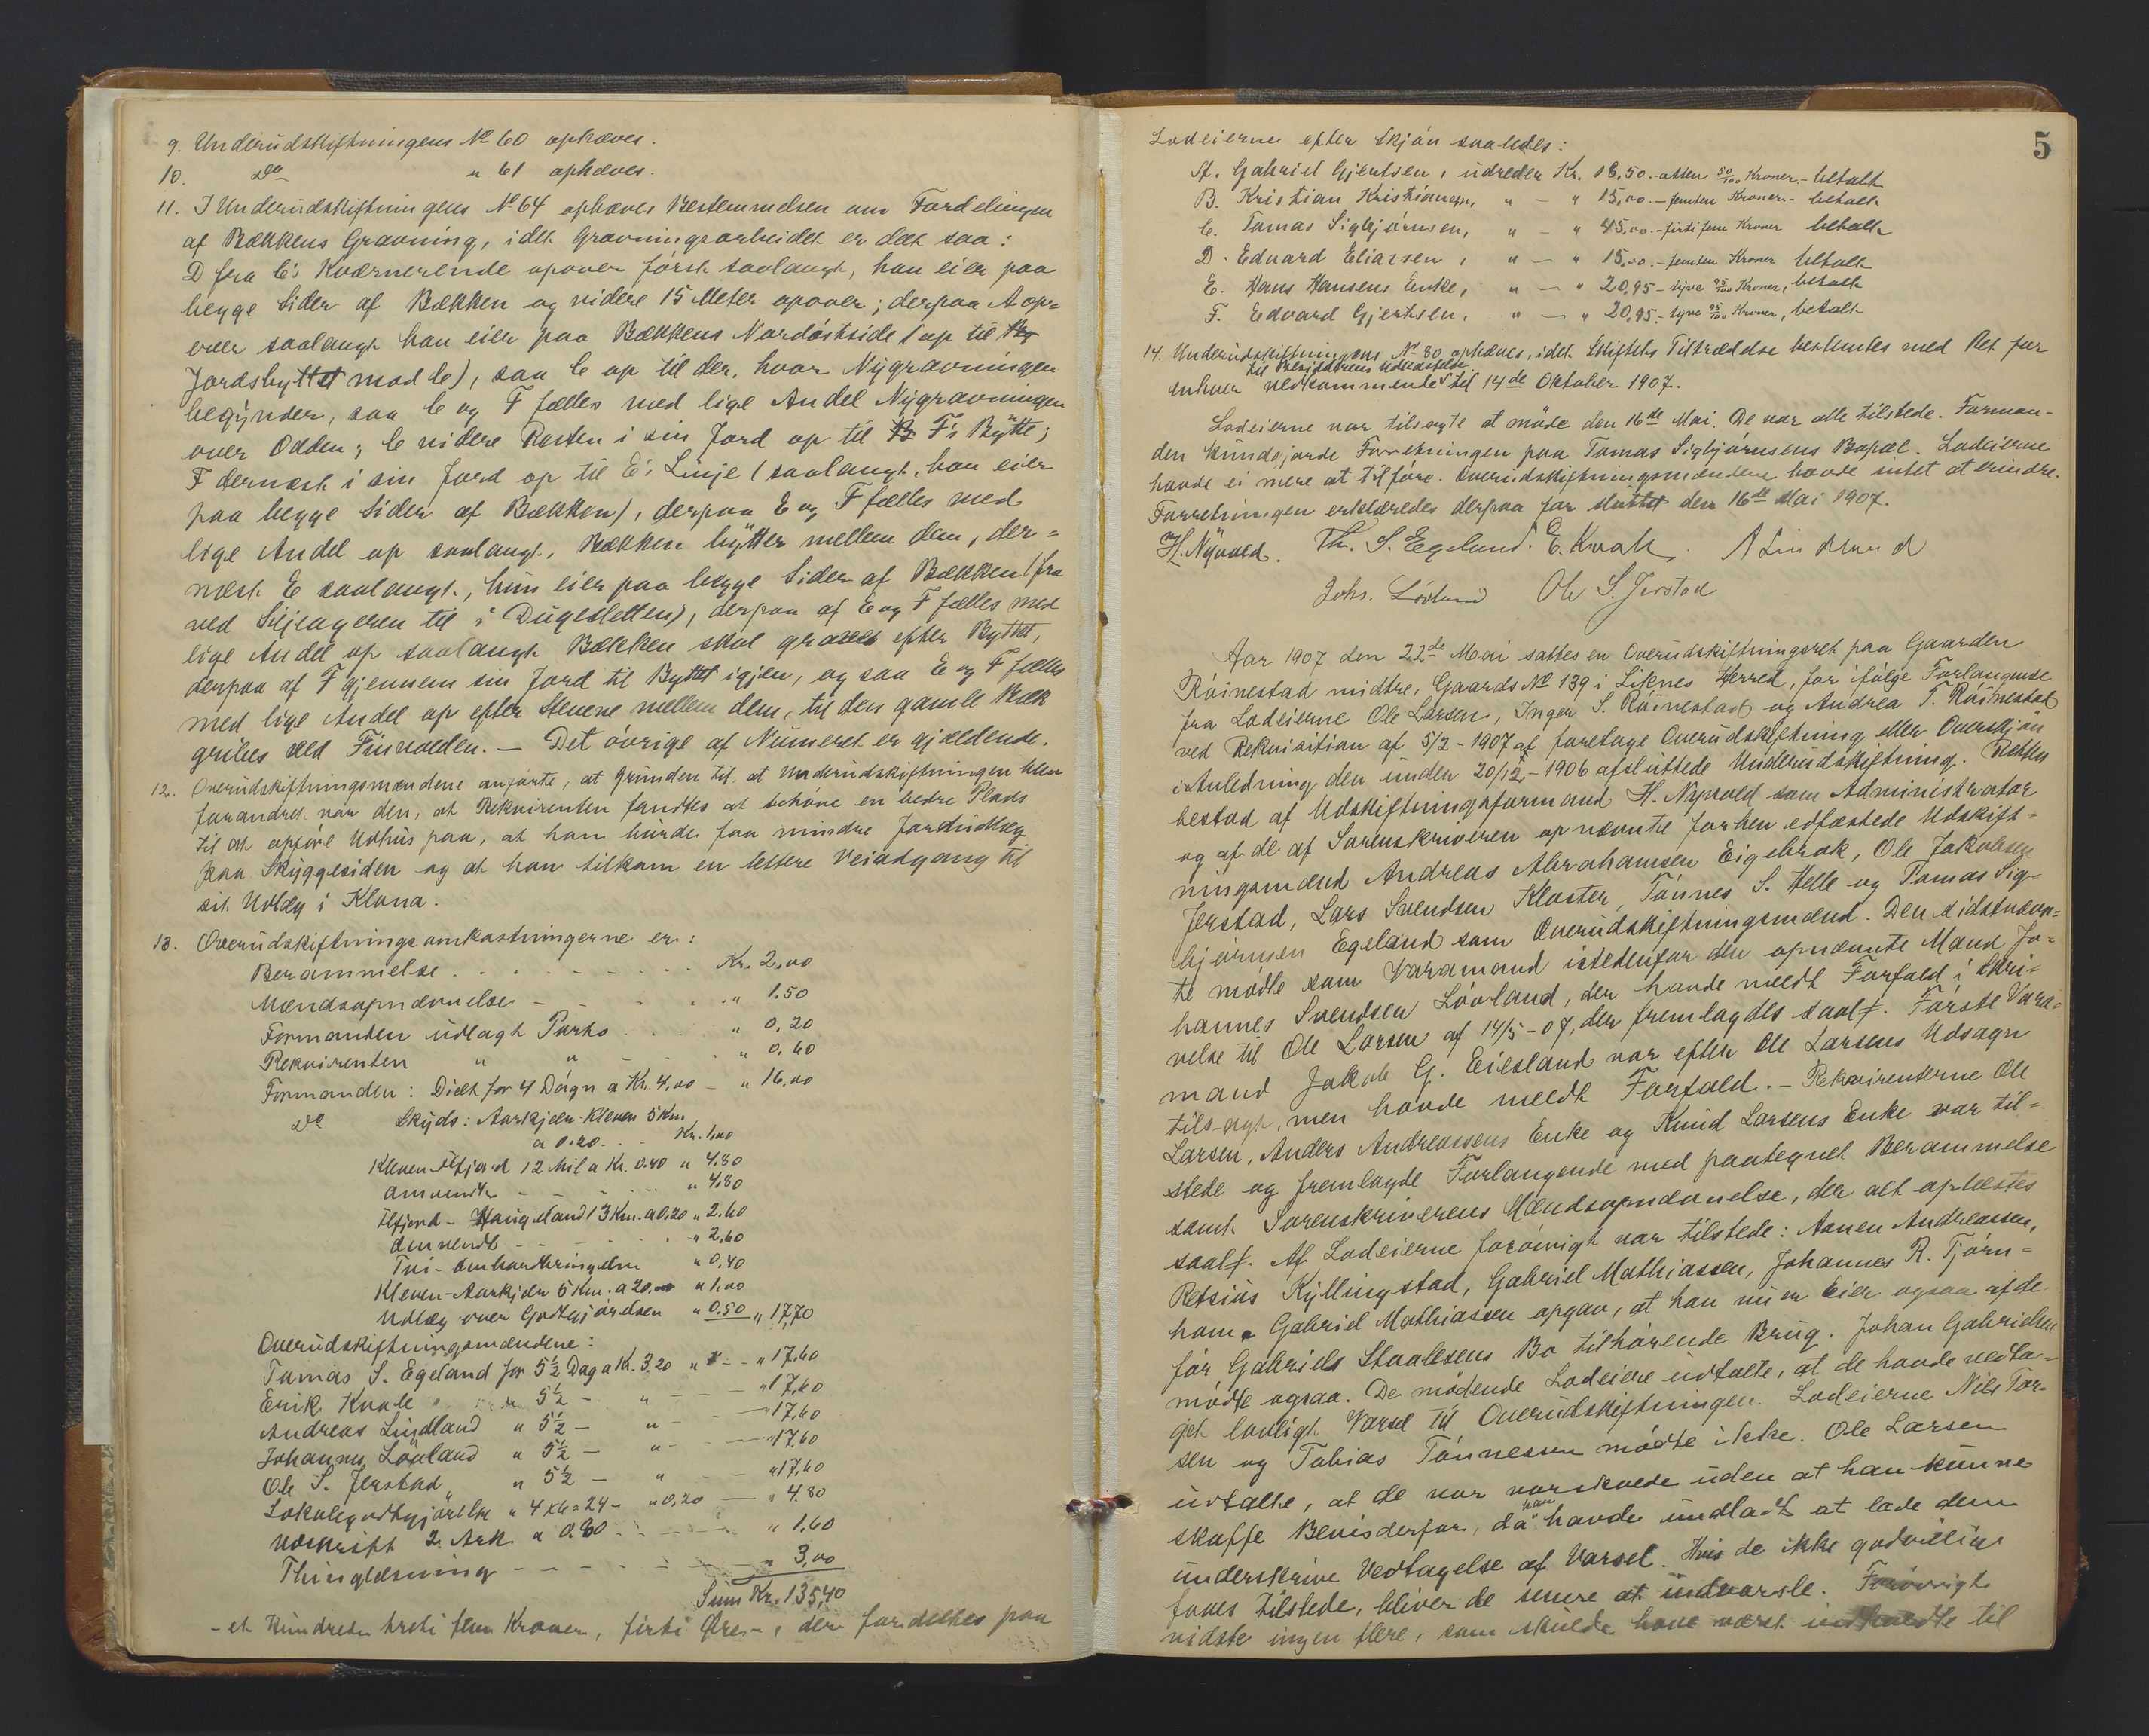 9. Underudskiftningens No 60 ophæves.
10. Do " 61 ophæves.
11. I Underudskiftningens No 64 ophæves Bestemmelsen om Fordelingen
af Bækkens Gravning, idet Gravningsarbeidet er delt saa:
D fra C's Kværnerende opover først saalangt, han eier paa
begge Sider af Bækken og videre 15 Meter opover; derpaa A op-
over saalangt han eier paa Bækkens Nordøstside (op til
Jordsbyttet mod C), saa C op til der, hvor Nygravningen
begynder, saa C og F fælles med lige Andel Nygravningen
over Odden; C videre Resten i sin Jord op til F's Bytte;
F dernæst i sin Jord op til E's Linje (saalangt, han eier
paa begge Sider af Bækken), derpaa E og F fælles med
lige Andel op saalangt, Bækken bytter mellem dem, der-
næst E saalangt, hun eier paa begge Sider af Bækken (fra
ved Siljeageren til i Dugesletten), derpaa af E og F fælles med
lige Andel op saalangt Bækken skal graves efter Byttet,
derpaa af F gjennem sin Jord til Byttet igjen, og saa E og F fælles
med lige Andel op efter Stenene mellem dem, til den gamle Bæk
gribes ved Finvolden. — Det øvrige af Numeret er gjældende.
12. Overudskiftningsmændene anførte, at Grunden til at Underudskiftningen blev
forandret var den, at Rekvirenten fandtes at behøve en bedre Plads
til at opføre Udhus paa, at han burde faa mindre Jordudlæg
paa Skyggesiden og at han tilkom en lettere Veiadgang til
sit Udlæg i Klona.
13. Overudskiftningsomkostningerne er:
Berammelse . . . Kr. 2,00
Mændsopnævnelse - " 1.50
Formanden udlagt Porto . . " 0,20
Rekvirenten " " - " 0,60
Formanden: Diæt for 4 Døgn a Kr. 4,00 — " 16,00
Do Skyds: Aarkjeln-Kleven 5 Km
a 0.20 . . Kr. 1,00
Kleven-Flfjord 12 Mil a Kr. 0.40 " 4,80
omvendt - " 4,80
Flfjord - Haugeland 13 Km. a 0,20 " 2.60
omvendt - " 2,60
Tri-Ombordbringelse " 0,40
Kleven-Aarkjeln 5 Km. a 20 " 1,00
Udlæg over Godtgjørelsen " 0.50 " 17,70
Overudskiftningsmændene:
Tomas S. Egeland for 5½ Dag a Kr. 3.20 " - - " 17,60
Erik Kvale " 5½ - " - - " 17,60
Andreas Lindland " 5½ - " - - " 17,60
Johannes Løvland " 5½ - " - - " 17,60
Ole S. Jerstad " 5½ - " - " 17,60
Lokalegodtgjørelse " 4 x 6 = 24 - " 0,20 — " 4.80
Udskrift 2 Ark a 0.80 - - " 1,60
Thinglæsning - - - " 3,00
Sum Kr. 135,40
- et Hundrede treti fem Kroner, firti Øre -, der fordeltes paa
5
Lodeierne efter Skjøn saaledes:
A. Gabriel Gjertsen, udreder Kr. 18,50.- atten 50/100 Kroner - betalt
B. Kristian Kristiansen, " — " 15,00.- femten Kroner - betalt
C. Tomas Sigbjørnsen, " — " 45,00.- firti fem Kroner betalt
D. Edvard Eliassen, " — " 15,00.- femten Kroner betalt
E. Hans Hansens Enke, " — " 20,95 - tyve 95/100 Kroner, betalt
F. Edvard Gjertsen, " — " 20,95 - tyve 95/100 Kroner, betalt
14. Underudskiftningens No 80 ophæves, idet Skiftets Tiltrædelse bestemtes med Ret for
enhver vedkommende til 14de Oktober 1907.
Lodeierne var tilsagte at møde den 16de Mai. De var alle tilstede. Forman-
den kundgjorde Forretningen paa Tomas Sigbjørnsens Bopæl. Lodeierne
havde ei mere at tilføre. Overudskiftningsmændene havde intet at erindre.
Forretningen erklæredes derpaa for sluttet den 16de Mai 1907.
H. Nyvold. Th. S. Egeland. E. Kvale. A Lindland
Johs. Løvland Ole S. Jerstad
Aar 1907 den 22de Mai sattes en Overudskiftningsret paa Gaarden
Røinestad midtre, Gaards No 139 i Liknes Herred, for ifølge Forlangende
fra Lodeierne Ole Larsen, Inger S. Røinestad og Andrea T. Røinestad
ved Rekvisition af 5/2 - 1907 at foretage Overudskiftning eller Overskjøn
i Anledning den under 20/12 - 1906 afsluttede Underudskiftning. Retten
bestod af Udskiftningsformand H. Nyvold som Administrator
og af de af Sorenskriveren opnævnte forhen edfæstede Udskift-
ningsmænd Andreas Abrahamsen Eigebrak, Ole Jakobsen
Jerstad, Lars Svendsen Kloster, Tønnes S. Helle og Tomas Sig-
bjørnsen Egeland som Overudskiftningsmænd. Den sidstnævn-
te mødte som Varamand istedenfor den opnævnte Mand Jo-
hannes Svendsen Løvland, der havde meldt Forfald i Skri-
velse til Ole Larsen af 14/5 - 07, der fremlagdes saalf. Første Vara-
mand Jakob G. Eiesland var efter Ole Larsens Udsagn
tilsagt, men havde meldt Forfald. - Rekvirenterne Ole
Larsen, Anders Andreassens Enke og Knud Larsens Enke var til-
stede og fremlagde Forlangende med paategnet Berammelse
samt Sorenskriverens Mændsopnævnelse, der alt oplæstes
saalf. Af Lodeierne forøvrigt var tilstede: Aanen Andreassen,
Retsius Kyllingstad, Gabriel Mathiassen, Johannes R. Tjørn-
hom. Gabriel Mathiassen opgav, at han nu er Eier ogsaa af de
før Gabriels Staalesens Bo tilhørende Brug. Johan Gabrielsen
mødte ogsaa. De mødende Lodeiere udtalte, at de havde vedta-
get lovligt Varsel til Overudskiftningen. Lodeierne Nils Tor-
sen og Tobias Tønnessen mødte ikke. Ole Larsen
udtalte, at de var varskoede uden at han kunne
skaffe Bevis derfor, da han havde undladt at lade dem
underskrive Vedtagelse af Varsel. Hvis de ikke godvillig
faaes tilstede, bliver de senere at indvarsle. Forøvrigt
vidste ingen flere, som skulde have været indkaldte til